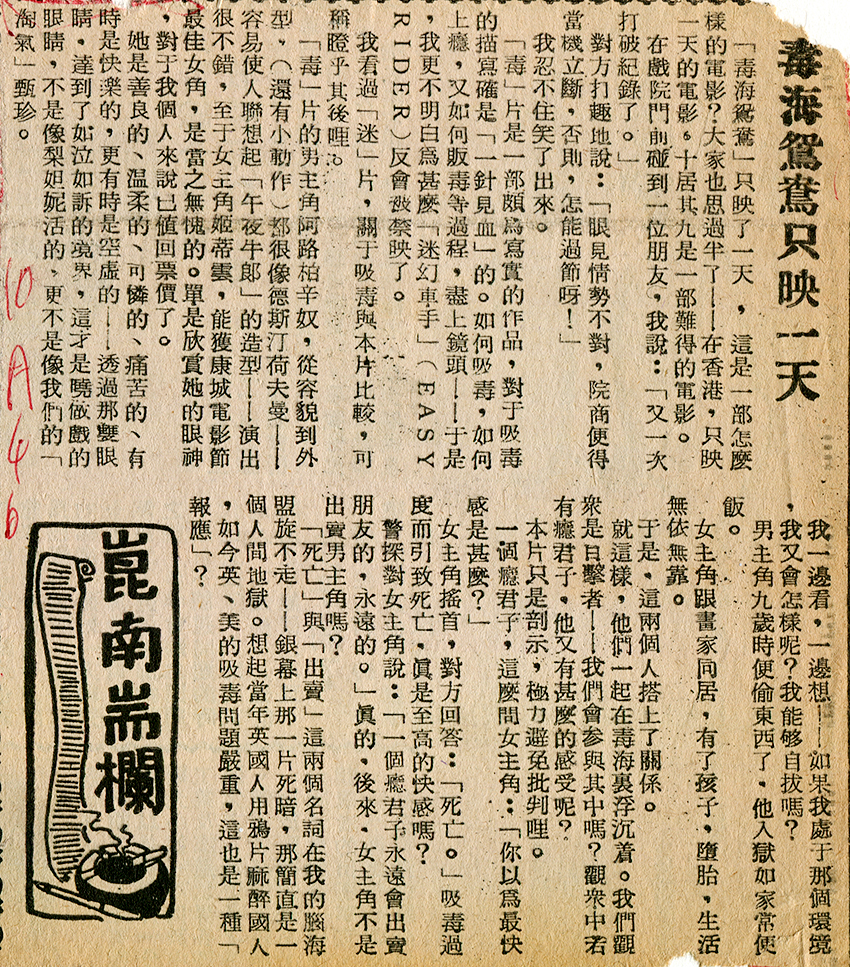 毒海鴛鴦只映一天
「毒海鴛鴦」只映了一天，這是一部怎麼
樣的電影？大家也思過半了——在香港，只映
一天的電影。十居其九是一部難得的電影。
在戲院門前碰到一位朋友，我說：「又一次
打破紀錄了。」
對方打趣地說：「眼見情勢不對，院商便得
當機立斷，否則，怎能過節呀！」
我忍不住笑了出來。
「毒」片是一部頗爲寫實的作品，對于吸毒
的描寫確是「一針見血」的。如何吸毒，如何
上癮，又如何販毒等過程，盡上鏡頭——于是
，我更不明白爲甚麼「迷幻車手」（EASY
RIDER）反會被禁映了。
我看過「迷」片，關于吸毒與本片比較，可
稱瞠乎其後哩。
「毒」片的男主角阿路柏辛奴，從容貌到外
型，（還有小動作）都很像德斯汀荷夫曼——
容易使人聯想起「午夜牛郎」的造型——演出
很不錯，至于女主角姬蒂雲，能獲康城電影節
最佳女角，是當之無愧的。單是欣賞她的眼神
，對于我個人來說已值回票價了。
她是善良的、温柔的、可憐的、痛苦的、有
時是快樂的，更有時是空虛的——透過那雙眼
睛，達到了如泣如訴的境界，這才是曉做戲的
眼睛，不是像梨妲妮活的，更不是像我們的「
淘氣」甄珍。
我一邊看，一邊想——如果我處于那個環境
，我又會怎樣呢？我能够自拔嗎？
男主角九歲時便偷東西了，他入獄如家常便
飯。
女主角跟畫家同居，有了孩子，墮胎，生活
無依無靠。
于是，這兩個人搭上了關係。
就這樣，他們一起在毒海裏浮沉着。我們觀
衆是目擊者——我們會參與其中嗎？觀衆中若
有癮君子，他又有甚麼的感受呢？
本片只是剖示，極力避免批判哩。
一個癮君子，這麼問女主角：「你以爲最快
感是甚麼？」
女主角搖首，對方回答：「死亡。」吸毒過
度而引致死亡，眞是至高的快感嗎？
警探對女主角說：「一個癮君子永遠會出賣
朋友的，永遠的。」眞的，後來，女主角不是
出賣男主角嗎？
「死亡」與「出賣」這兩個名詞在我的腦海
盟旋不走——銀幕上那一片死暗，那簡直是一
個人間地獄。想起當年英國人用鴉片麻醉國人
，如今英、美的吸毒問題嚴重，這也是一種「
報應」？
崑南耑欄
10 A 46